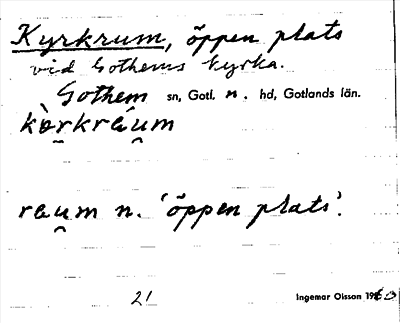 Kyrkrum, öppen plats
vid Gothems kyrka.
Gothem sn, Gotl. n. hd, Gotlands län.
kò̯rkráu̯m
rau̯m n. 'öppen plats'.
21 Ingemar Olsson 1960